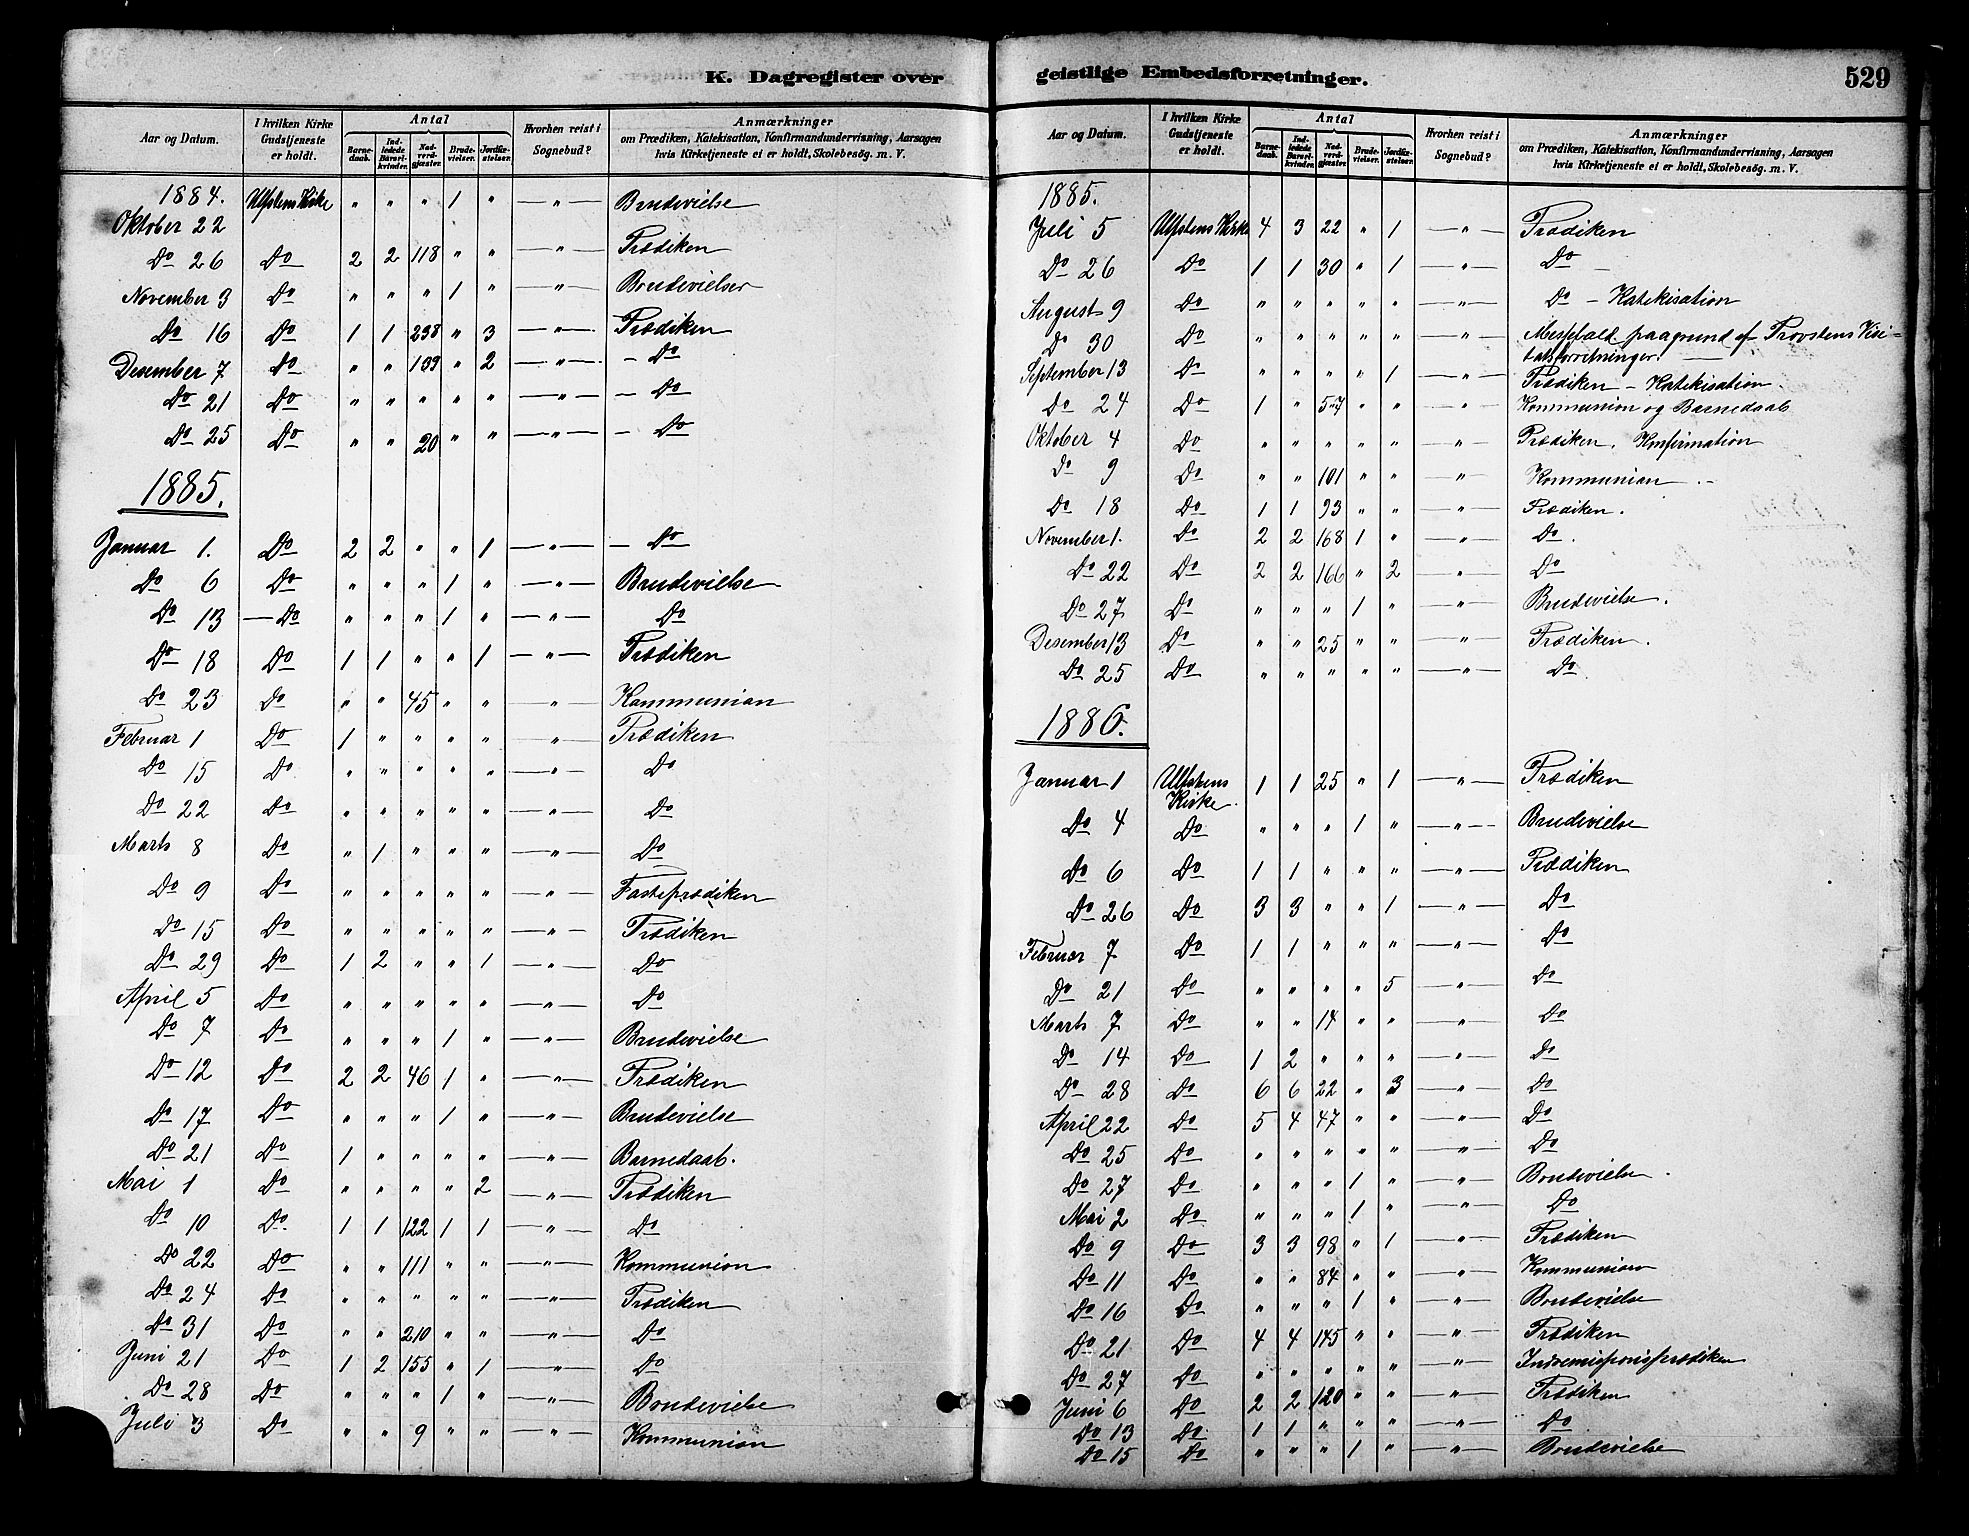 K. Dagregister over
Aar og Datum. I hvilken Kirke Gudstjeneste er holdt. Antal Barnedaab. Indledede Barselkvinder. Nadverdgjæster. Brudevielser. Jordfæstelser. Hvorhen reist i Sognebud? Anmærkninger om Prædiken, Katekisation, Konfirmandundervisning, Aarsagen hvis Kirketjeneste ei er holdt, Skolebesøg. m. V.
1884. Ulfstens Kirke " " " 1 " — " — Brudevielse
Oktober 22
Do 26 Do 2 2 118 " " — " — Prædiken
November 3 Do " " " 1 " — " — Brudevielser
Do 16 Do 1 1 238 " 3 — " — Prædiken
Desember 7 Do " " 109 " 2 — " — – Do
Do 21 Do " " " " " — " — – Do
Do 25 Do " " 20 " " — " — – Do
1885.
Januar 1. Do 2 2 " " 1 — " — – Do
Do 6 Do " " " 1 " — " — Brudevielse
Do 13 — Do " " " 1 " — " — Do
Do 18 Do 1 1 " " 1 — " — Prædiken
Do 23 Do " " 45 " " — " — Kommunion
Februar 1 Do 1 " " " " — " — Prædiken
Do 15 Do " " " " " — " — Do
Do 22 Do " " " " " — " — Do
Marts 8 Do " 1 " " " — " — Do
Do 9 Do " " " " " — " — Fasteprædiken
Do 15 Do " " " " " — " — Prædiken
Do 29 Do 1 2 " " 1 — " — Do
April 5 Do " " " " " — " — Do
Do 7 Do " " " 1 " — " — Brudevielse
Do 12 Do 2 2 46 1 " — " — Prædiken
Do 17 Do " " " 1 " — " — Brudevielse
Do 21 Do 1 " " " " — " — Barnedaab.
Mai 1 Do " " " " 2 — " — Prædiken
Do 10 Do. 1 1 122 1 1 — " — Do
Do 22 Do " " 111 " " — " — Kommunion
Do 24 Do " " " " " — " — Prædiken
Do 31 Do " " 210 " " — " — Do
Juni 21 Do 1 2 155 " 1 — " — Do
Do 28 Do " " " 1 " — " — Brudevielse
Juli 3 Do " " 9 " " — " — Kommunion
geistlige Embedsforretninger. 529
Aar og Datum. I hvilken Kirke Gudstjeneste er holdt. Antal Barnedaab. Indledede Barselkvinder. Nadverdgjæster. Brudevielser. Jordfæstelser. Hvorhen reist i Sognebud? Anmærkninger om Prædiken, Katekisation, Konfirmandundervisning, Aarsagen hvis Kirketjeneste ei er holdt, Skolebesøg. m. V.
1885.
Juli 5 Ulfstens Kirke 4 3 22 " 1 — " — Prædiken
Do 26 Do 1 1 30 " 1 — " — Do –
August 9 Do " " " " " — " — Do – Katekisation
Do 30 Do " " " " " — " — Messefald paagrund af Provstens Visi-
tatsforretninger. —
September 13 Do " " " " 1 — " — Prædiken – Katekisation.
Do 24 Do 1 " 57 " " — " — Kommunion og Barnedaab
Oktober 4 Do " " " " " — " — Prædiken. Konfirmation
Do 9 Do " " 101 " " — " — Kommunion . –
Do 18 Do 1 1 93 " " — " — Prædiken.
November 1. Do 2 2 168 1 " — " — Do.
Do 22 Do 2 2 166 " 2 — " — Do
Do 27 Do " " " 1 " — " — Brudevielse.
Desember 13 Do " " 25 " " — " — Prædiken.
Do 25 Do " " " " " — " — Do
1886.
Januar 1 Ulfstens Kirke. 1 1 25 " 1 — " — Prædiken
Do 4 Do " " " 1 " — " — Brudevielse
Do 6 Do 1 1 " " " — " — Prædiken
Do 26 Do 3 3 " " 1 — " — Do
Februar 7 Do 1 1 " " " — " — Do
Do 21 Do " " " " 5 — " — Do
Marts 7 Do " " 14 " " — " — Do
Do 14 Do 1 2 " " " — " — Do
Do 28 Do 6 6 22 " 3 — " — Do
April 22 Do 5 4 47 " " — " — Do
Do 25 Do " " " " " — " — Do
Do 27 Do " " " 1 " — " — Brudevielse.
Mai 2 Do " " " 1 " — " — Do
Do 9 Do 3 3 98 " 1 — " — Prædiken
Do 11 Do " " 84 " " — " — Kommunion
Do 16 Do " " " 1 " — " — Brudevielse
Do 21 Do 4 4 145 " " — " — Prædiken
Do 27 Do " " " " " — " — Indremissionsprædiken
Juni 6 Do 2 2 120 " " — " — Prædiken
Do 13 Do 1 1 " " " — " — Do
Do 15 Do " " " 1 " — " — Brudevielse